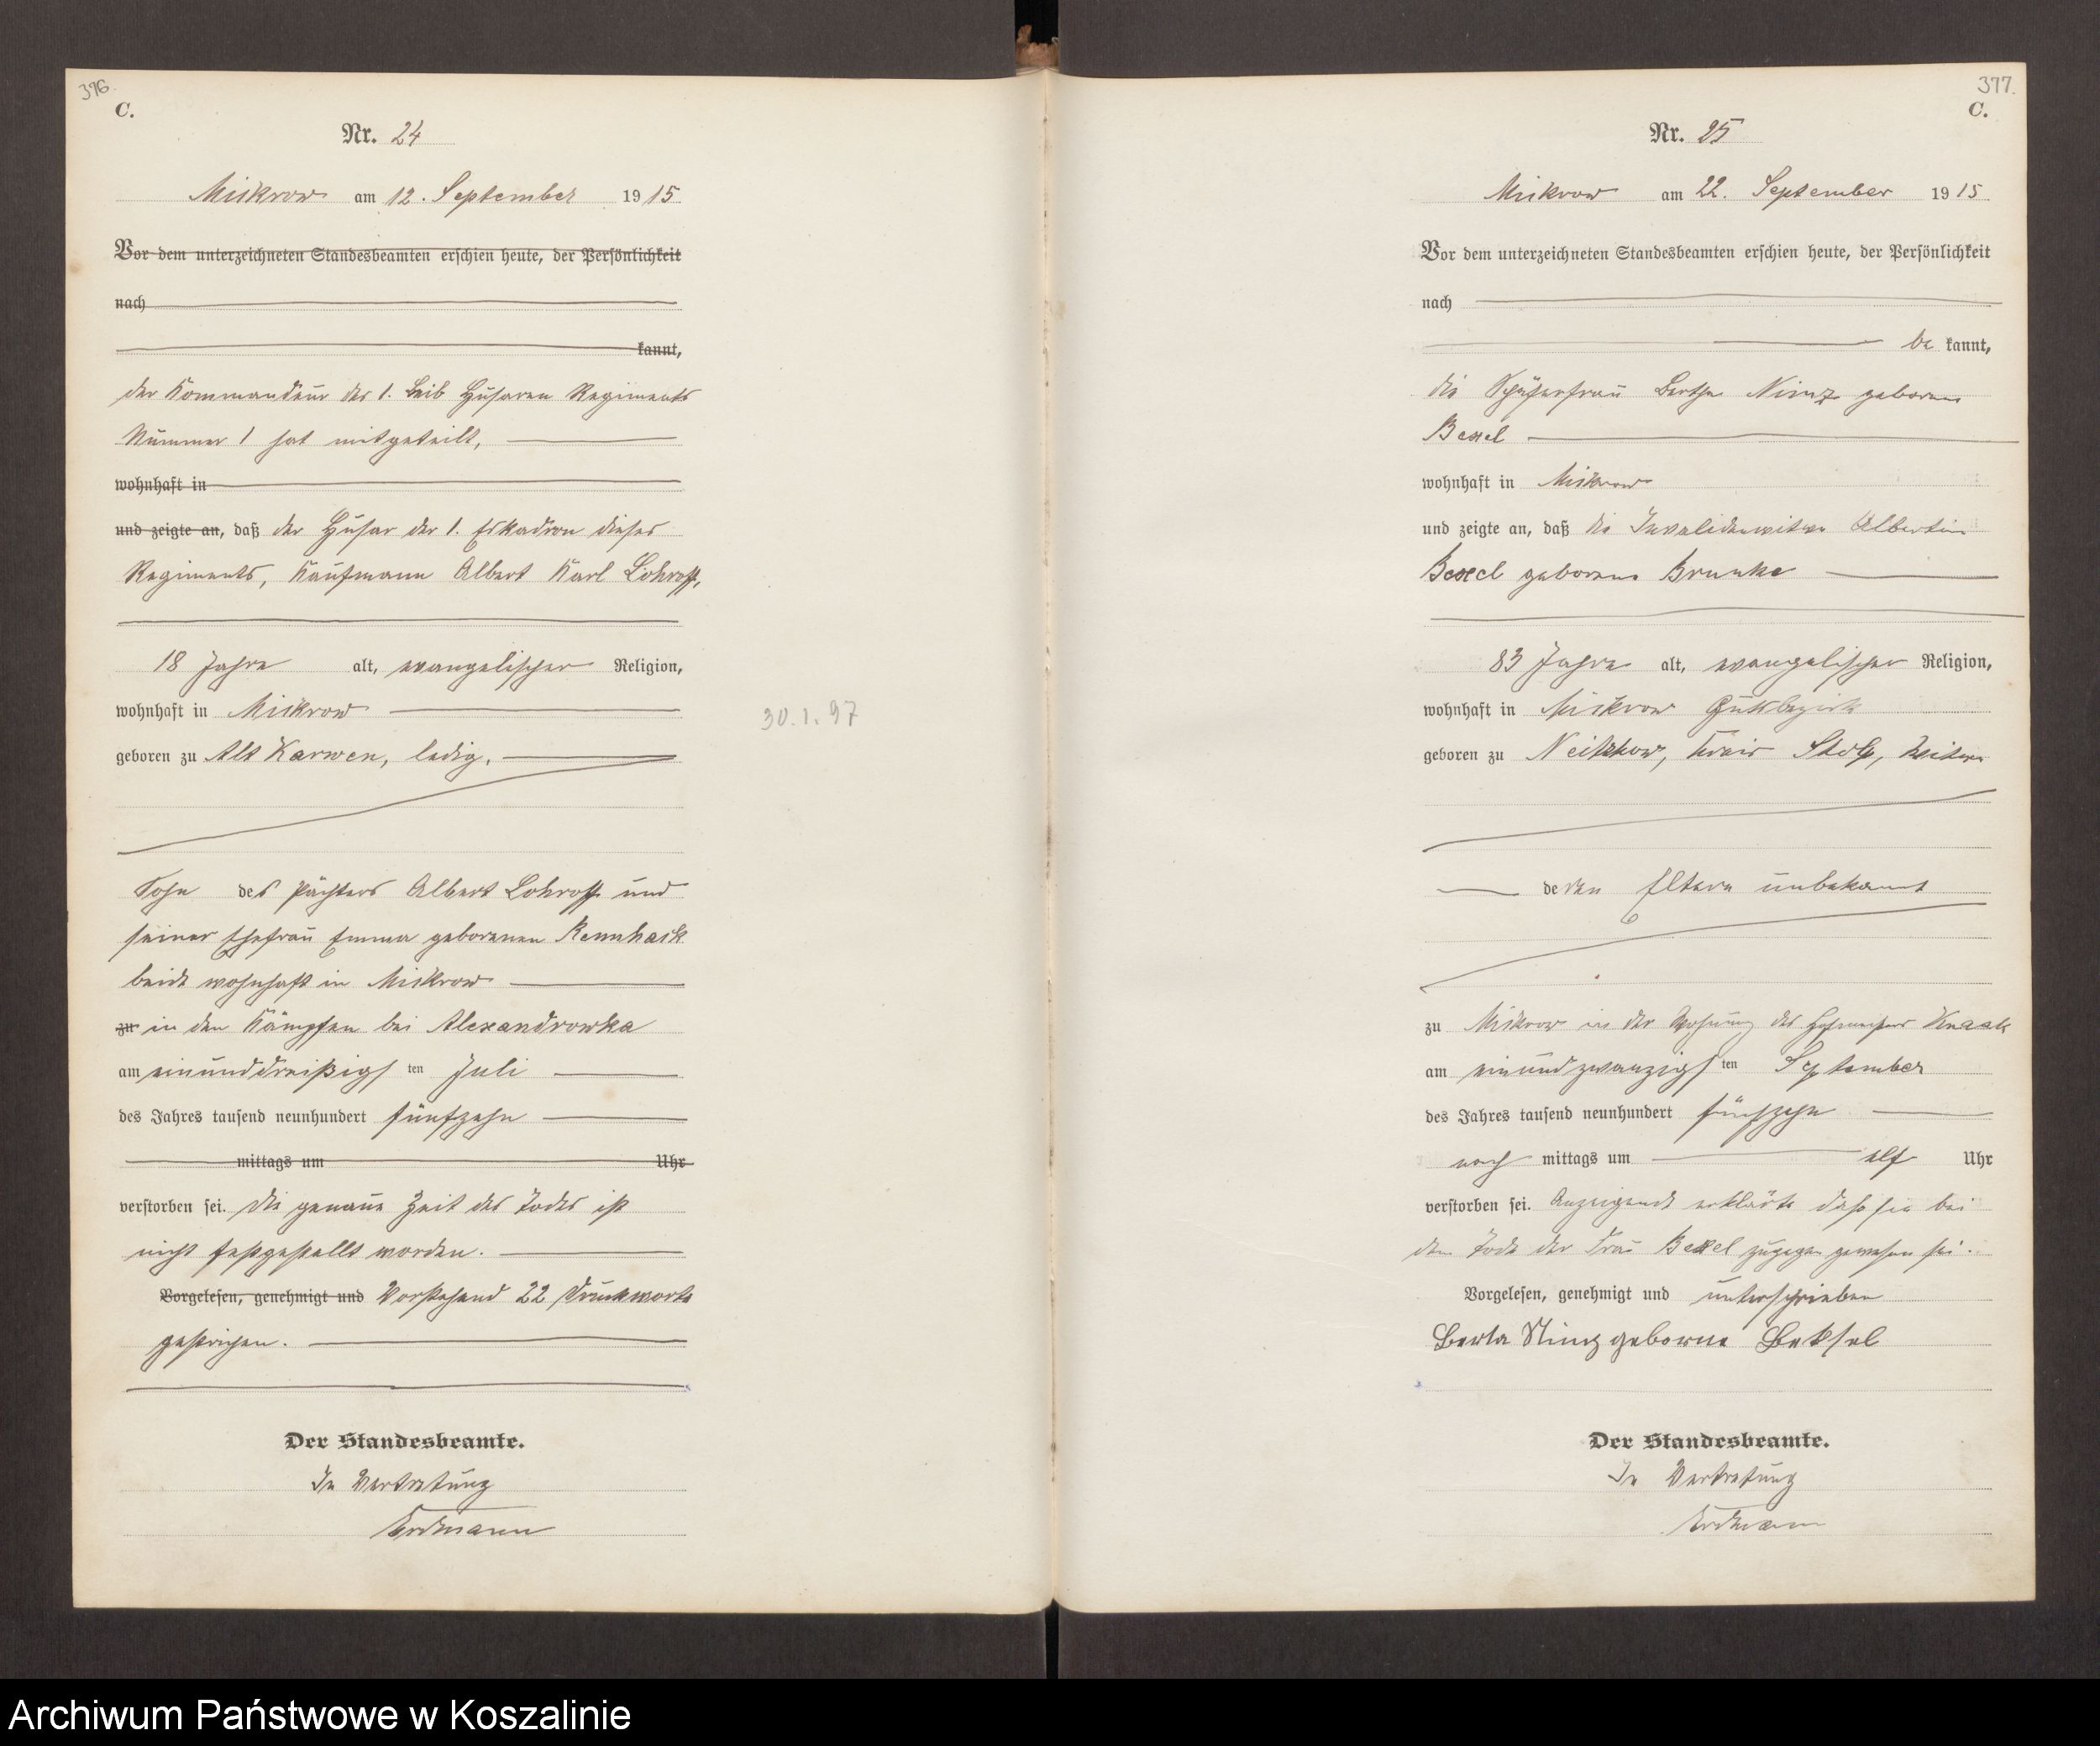 376.
C.
Nr. 24
Mickrow am 12. September 1915
Vor dem unterzeichneten Standesbeamten erschien heute, der Persönlichkeit
nach
kannt,
der Kommandeur des 1. Leib Husaren Regiments
Nummer 1 hat mitgeteilt,
wohnhaft in
und zeigte an, daß der Husar der 1. Eskadron dieses
Regiments, Kaufmann Albert Karl Lohroff,
18 Jahre alt, evangelischer Religion,
wohnhaft in Mickrow
geboren zu Alt Karwen, ledig,
30.1.97
Sohn des Pächters Albert Lohroff und
seiner Ehefrau Emma geborenen Rennhack
beide wohnhaft in Mickrow
zu in den Kämpfen bei Alexandrowka
am einunddreißigsten Juli
des Jahres tausend neunhundert fünfzehn
mittags um Uhr
verstorben sei. Die genaue Zeit des Todes ist
nicht festgestellt worden.
Vorgelesen, genehmigt und Vorstehend 22 Druckworte
gestrichen.
Der Standesbeamte.
In Vertretung
Erdmann
377.
C.
Nr. 25
Mickrow am 22. September 1915
Vor dem unterzeichneten Standesbeamten erschien heute, der Persönlichkeit
nach
be kannt,
die Schäferfrau Berthe Nimz geborene
Bexel
wohnhaft in Mickrow
und zeigte an, daß die Invalidenwitwe Albertine
Bexel geborene Brunke
83 Jahre alt, evangelischer Religion,
wohnhaft in Mickrow Gutsbezirk
geboren zu Neitzkow, Kreis Stolp, Witwe
deren Eltern unbekannt
zu Mickrow in der Wohnung des Hofmeisters Knaak
am einundzwanzigsten September
des Jahres tausend neunhundert fünfzehn
nach mittags um elf Uhr
verstorben sei. Anzeigende erklärte daß sie bei
dem Tode der Frau Bexel zugegen gewesen sei.
Vorgelesen, genehmigt und unterschrieben
Berta Nimz geborne Beksel
Der Standesbeamte.
In Vertretung
Erdmann
Archiwum Państwowe w Koszalinie